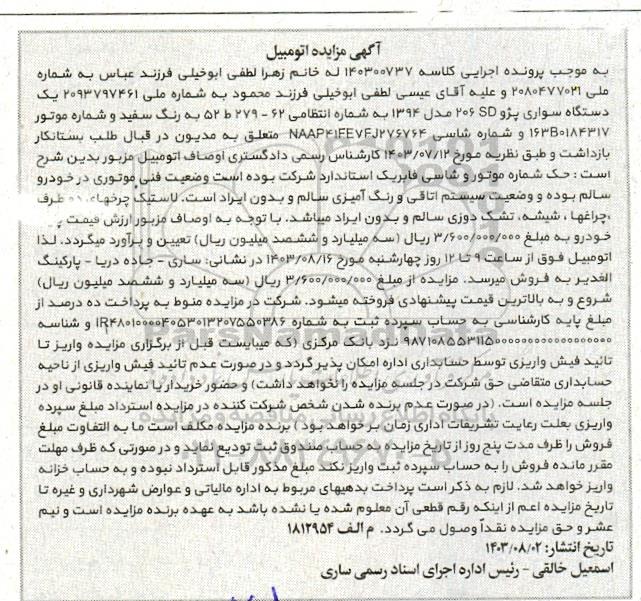 آگهی مزایده اتومبیل
به موجب پرونده اجرایی کلاسه ۱۴۰۳۰۰۷۳۷ له خانم زهرا لطفی ابوخیلی فرزند عباس به شماره
ملی ۲۰۸۰۴۷۷۰۲۱ و علیه آقای عیسی لطفی ابوخیلی فرزند محمود به شماره ملی ۲۰۹۳۷۹۷۴۶۱ یک
دستگاه سواری پژو ۲۰۶ SD مدل ۱۳۹۴ به شماره انتظامی ۶۲ - ۲۷۹ ط ۵۲ به رنگ سفید و شماره موتور
۱۶۳B۰۱۸۴۳۱۷ و شماره شاسی NAAP۴۱FE۷FJ۲۷۶۷۶۴ متعلق به مدیون در قبال طلب بستانکار
بازداشت و طبق نظریه مورخ ۱۴۰۳/۰۷/۱۲ کارشناس رسمی دادگستری اوصاف اتومبیل مزبور بدین شرح
است : حک شماره موتور و شاسی فابریک استاندارد شرکت بوده است وضعیت فنی موتوری در خودرو
سالم بوده و وضعیت سیستم اتاقی و رنگ آمیزی سالم و بدون ایراد است. لاستیک چرخهای دو طرف
،چراغها ، شیشه، تشک دوزی سالم و بدون ایراد میباشد. با توجه به اوصاف مزبور ارزش قیمت
خودرو به مبلغ ۳/۶۰۰/۰۰۰/۰۰۰ ریال (سه میلیارد و ششصد میلیون ریال) تعیین و برآورد میگردد. لذا
اتومبیل فوق از ساعت ۹ تا ۱۲ روز چهارشنبه مورخ ۱۴۰۳/۰۸/۱۶ در نشانی: ساری - جاده دریا - پارکینگ
الغدیر به فروش میرسد. مزایده از مبلغ ۳/۶۰۰/۰۰۰/۰۰۰ ریال (سه میلیارد و ششصد میلیون ریال)
شروع و به بالاترین قیمت پیشنهادی فروخته میشود. شرکت در مزایده منوط به پرداخت ده درصد از
مبلغ پایه کارشناسی به حساب سپرده ثبت به شماره و شناسه
نزد بانک مرکزی (که میبایست قبل از برگزاری مزایده واریز تا
تائید فیش واریزی توسط حسابداری اداره امکان پذیر گردد و در صورت عدم تائید فیش واریزی از ناحیه
حسابداری متقاضی حق شرکت در جلسه مزایده را نخواهد داشت) و حضور خریدار یا نماینده قانونی او در
جلسه مزایده است. (در صورت عدم برنده شدن شخص شرکت کننده در مزایده استرداد مبلغ سپرده
واریزی بعلت رعایت تشریفات اداری زمان بر خواهد بود ) برنده مزایده مکلف است ما به التفاوت مبلغ
فروش را ظرف مدت پنج روز از تاریخ مزایده به حساب صندوق ثبت تودیع نماید و در صورتی که ظرف مهلت
مقرر مانده فروش را به حساب سپرده ثبت واریز نکند مبلغ مذکور قابل استرداد نبوده و به حساب خزانه
واریز خواهد شد. لازم به ذکر است پرداخت بدهیهای مربوط به اداره مالیاتی و عوارض شهرداری و غیره تا
تاریخ مزایده اعم از اینکه رقم قطعی آن معلوم شده یا نشده باشد به عهده برنده مزایده است و نیم
عشر و حق مزایده نقداً وصول می گردد. م الف ۱۸۱۲۹۵۴
تاریخ انتشار: ۱۴۰۳/۰۸/۰۲
اسمعیل خالقی - رئیس اداره اجرای اسناد رسمی ساری